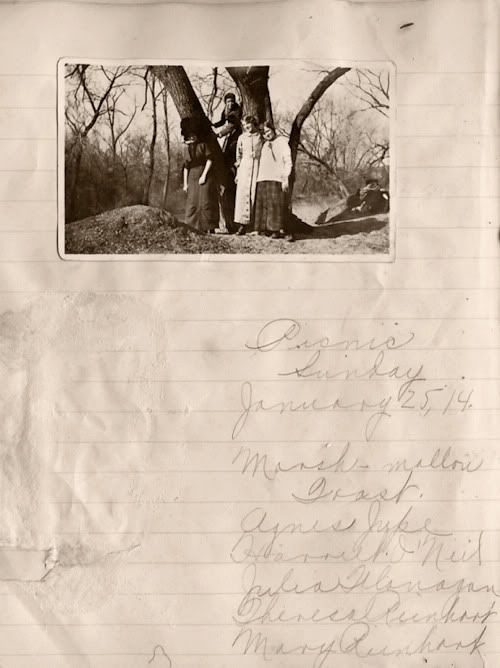 Picnic
Sunday
January 25, 14.
Marsh-mallow
Toast.
Agnes Juke
Harriet O'Neil
Julia Flanagan
Theresa Runhart
Mary Runhark